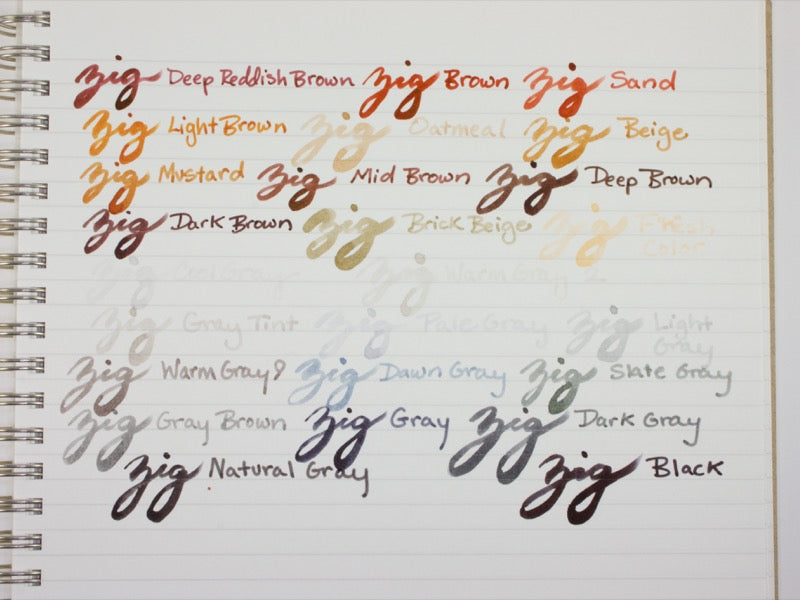 Zig Deep Reddish Brown Zig Brown Zig Sand
Zig Light Brown Zig Oatmeal Zig Beige
Zig Mustard Zig Mid Brown Zig Deep Brown
Zig Dark Brown Zig Brick Beige Zig Fresh
Color
Zig Cool Gray Zig Warm Gray 2
Zig Gray Tint Zig Pale Gray Zig Light
Gray
Zig Warm Gray 9 Zig Dawn Gray Zig Slate Gray
Zig Gray Brown Zig Gray Zig Dark Gray
Zig Natural Gray Zig Black